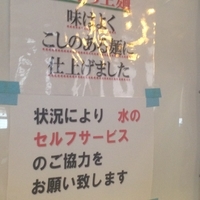 味によく
こしのある麺に
仕上げました
状況により 水の
セルフサービス
のご協力を
お願い致します